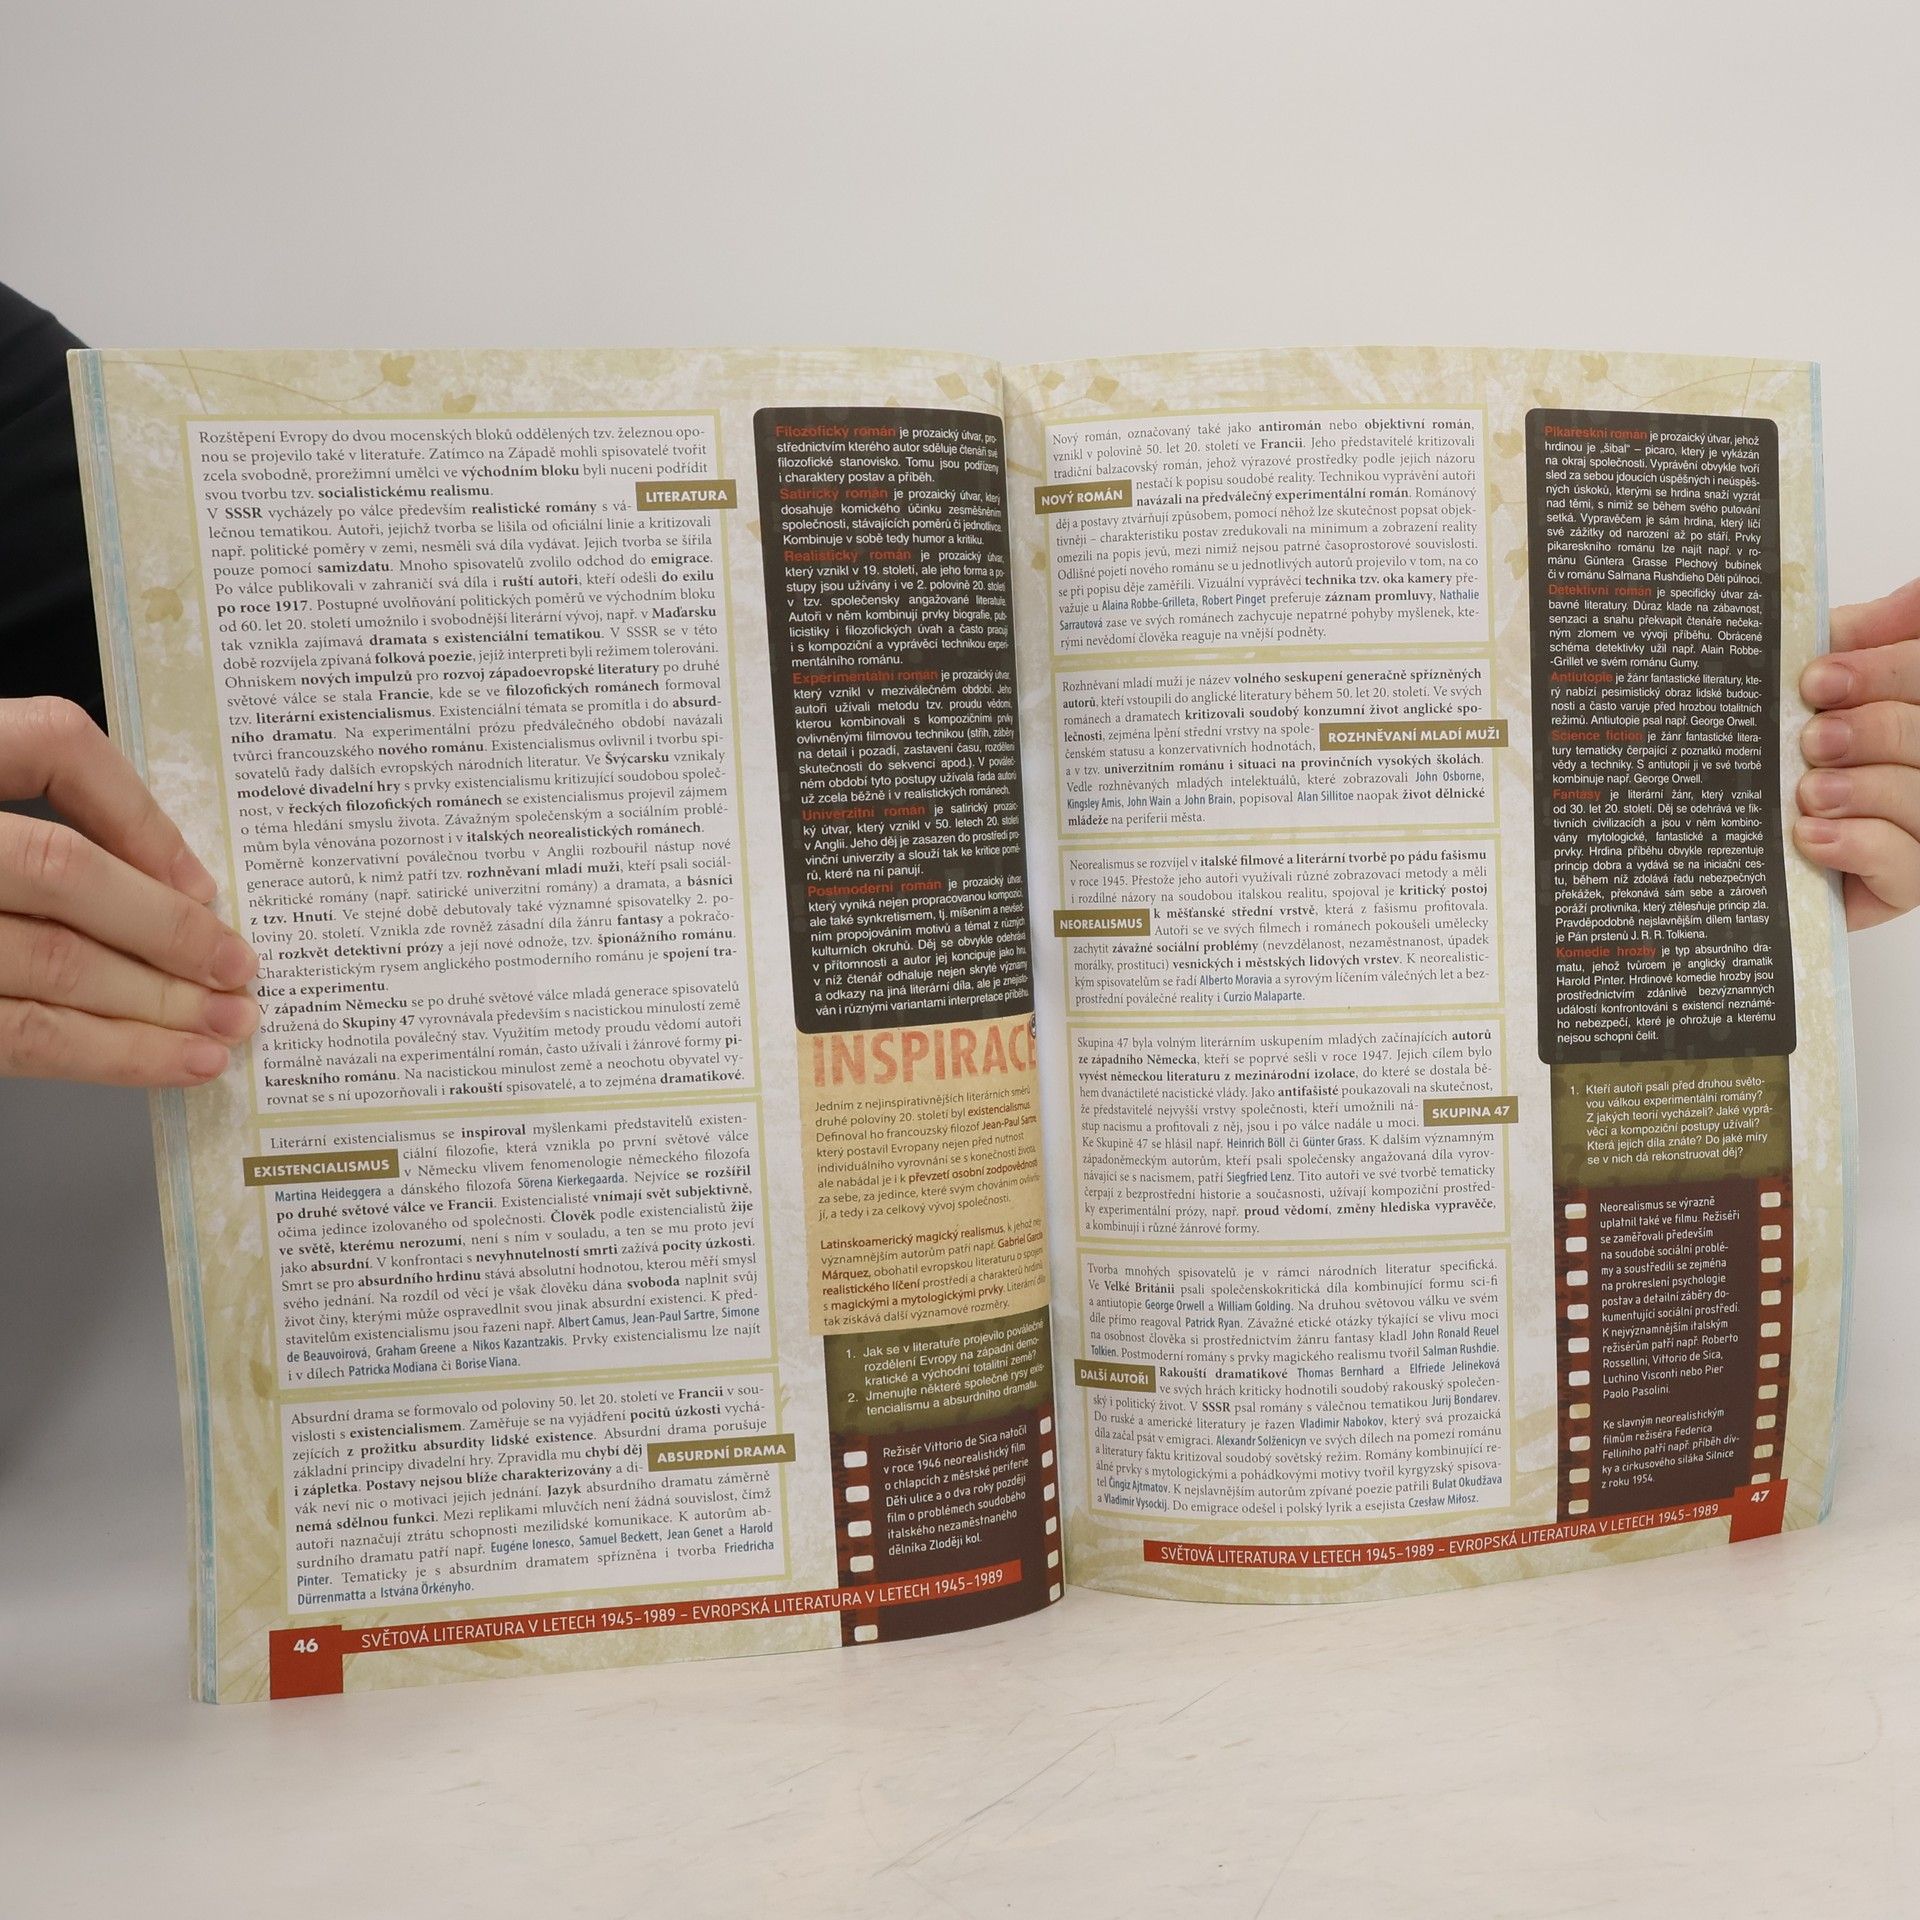 Rozštěpení Evropy do dvou mocenských bloků oddělených tzv. železnou opo-
nou se projevilo také v literatuře. Zatímco na Západě mohli spisovatelé tvořit
zcela svobodně, prorežimní umělci ve východním bloku byli nuceni podřídit
svou tvorbu tzv. socialistickému realismu.
LITERATURA
V SSSR vycházely po válce především realistické romány s vá-
lečnou tematikou. Autoři, jejichž tvorba se lišila od oficiální linie a kritizovali
např. politické poměry v zemi, nesměli svá díla vydávat. Jejich tvorba se šířila
pouze pomocí samizdatu. Mnoho spisovatelů zvolilo odchod do emigrace.
Po válce publikovali v zahraničí svá díla i ruští autoři, kteří odešli do exilu
po roce 1917. Postupné uvolňování politických poměrů ve východním bloku
od 60. let 20. století umožnilo i svobodnější literární vývoj, např. v Maďarsku
tak vznikla zajímavá dramata s existenciální tematikou. V SSSR se v této
době rozvíjela zpívaná folková poezie, jejíž interpreti byli režimem tolerováni.
Ohniskem nových impulzů pro rozvoj západoevropské literatury po druhé
světové válce se stala Francie, kde se ve filozofických románech formoval
tzv. literární existencialismus. Existenciální témata se promítla i do absurd-
ního dramatu. Na experimentální prózu předválečného období navázali
tvůrci francouzského nového románu. Existencialismus ovlivnil i tvorbu spi-
sovatelů řady dalších evropských národních literatur. Ve Švýcarsku vznikaly
modelové divadelní hry s prvky existencialismu kritizující soudobou společ-
nost, v řeckých filozofických románech se existencialismus projevil zájmem
o téma hledání smyslu života. Závažným společenským a sociálním problé-
mům byla věnována pozornost i v italských neorealistických románech.
Poměrně konzervativní poválečnou tvorbu v Anglii rozbouřil nástup nové
generace autorů, k nimž patří tzv. rozhněvaní mladí muži, kteří psali sociál-
někritické romány (např. satirické univerzitní romány) a dramata, a básníci
z tzv. Hnutí. Ve stejné době debutovaly také významné spisovatelky 2. po-
loviny 20. století. Vznikla zde rovněž zásadní díla žánru fantasy a pokračo-
val rozkvět detektivní prózy a její nové odnože, tzv. špionážního románu.
Charakteristickým rysem anglického postmoderního románu je spojení tra-
dice a experimentu.
V západním Německu se po druhé světové válce mladá generace spisovatelů
sdružená do Skupiny 47 vyrovnávala především s nacistickou minulostí země
a kriticky hodnotila poválečný stav. Využitím metody proudu vědomí autoři
formálně navázali na experimentální román, často užívali i žánrové formy pi-
kareskního románu. Na nacistickou minulost země a neochotu obyvatel vy-
rovnat se s ní upozorňovali i rakouští spisovatelé, a to zejména dramatikové.
Literární existencialismus se inspiroval myšlenkami představitelů existen-
ciální filozofie, která vznikla po první světové válce
EXISTENCIALISMUS
v Německu vlivem fenomenologie německého filozofa
Martina Heideggera a dánského filozofa Sörena Kierkegaarda. Nejvíce se rozšířil
po druhé světové válce ve Francii. Existencialisté vnímají svět subjektivně,
očima jedince izolovaného od společnosti. Člověk podle existencialistů žije
ve světě, kterému nerozumí, není s ním v souladu, a ten se mu proto jeví
jako absurdní. V konfrontaci s nevyhnutelností smrti zažívá pocity úzkosti.
Smrt se pro absurdního hrdinu stává absolutní hodnotou, kterou měří smysl
svého jednání. Na rozdíl od věcí je však člověku dána svoboda naplnit svůj
život činy, kterými může ospravedlnit svou jinak absurdní existenci. K před-
stavitelům existencialismu jsou řazeni např. Albert Camus, Jean-Paul Sartre, Simone
de Beauvoirová, Graham Greene a Nikos Kazantzakis. Prvky existencialismu lze najít
i v dílech Patricka Modiana či Borise Viana.
Absurdní drama se formovalo od poloviny 50. let 20. století ve Francii v sou-
vislosti s existencialismem. Zaměřuje se na vyjádření pocitů úzkosti vychá-
zejících z prožitku absurdity lidské existence. Absurdní drama porušuje
základní principy divadelní hry. Zpravidla mu chybí děj
ABSURDNÍ DRAMA
i zápletka. Postavy nejsou blíže charakterizovány a di-
vák neví nic o motivaci jejich jednání. Jazyk absurdního dramatu záměrně
nemá sdělnou funkci. Mezi replikami mluvčích není žádná souvislost, čímž
autoři naznačují ztrátu schopnosti mezilidské komunikace. K autorům ab-
surdního dramatu patří např. Eugéne Ionesco, Samuel Beckett, Jean Genet a Harold
Pinter. Tematicky je s absurdním dramatem spřízněna i tvorba Friedricha
Dürrenmatta a Istvána Örkényho.
Filozofický román je prozaický útvar, pro-
střednictvím kterého autor sděluje čtenáři své
filozofické stanovisko. Tomu jsou podřízeny
i charaktery postav a příběh.
Satirický román je prozaický útvar, který
dosahuje komického účinku zesměšněním
společnosti, stávajících poměrů či jednotlivce.
Kombinuje v sobě tedy humor a kritiku.
Realistický román je prozaický útvar,
který vznikl v 19. století, ale jeho forma a po-
stupy jsou užívány i ve 2. polovině 20. století
v tzv. společensky angažované literatuře.
Autoři v něm kombinují prvky biografie, pub-
licistiky i filozofických úvah a často pracují
i s kompoziční a vyprávěcí technikou experi-
mentálního románu.
Experimentální román je prozaický útvar,
který vznikl v meziválečném období. Jeho
autoři užívali metodu tzv. proudu vědomí,
kterou kombinovali s kompozičními prvky
ovlivněnými filmovou technikou (střih, záběry
na detail i pozadí, zastavení času, rozdělení
skutečnosti do sekvencí apod.). V pováleč-
ném období tyto postupy užívala řada autorů
už zcela běžně i v realistických románech.
Univerzitní román je satirický prozaic-
ký útvar, který vznikl v 50. letech 20. století
v Anglii. Jeho děj je zasazen do prostředí pro-
vinční univerzity a slouží tak ke kritice pomě-
rů, které na ní panují.
Postmoderní román je prozaický útvar,
který vyniká nejen propracovanou kompozicí,
ale také synkretismem, tj. míšením a nevšed-
ním propojováním motivů a témat z různých
kulturních okruhů. Děj se obvykle odehrává
v přítomnosti a autor jej koncipuje jako hru,
v níž čtenář odhaluje nejen skryté významy
a odkazy na jiná literární díla, ale je znejisťo-
ván i různými variantami interpretace příběhu.
INSPIRACE
Jedním z nejinspirativnějších literárních směrů
druhé poloviny 20. století byl existencialismus.
Definoval ho francouzský filozof Jean-Paul Sartre,
který postavil Evropany nejen před nutnost
individuálního vyrovnání se s konečností života,
ale nabádal je i k převzetí osobní zodpovědnosti
za sebe, za jedince, které svým chováním ovlivňu-
jí, a tedy i za celkový vývoj společnosti.
Latinskoamerický magický realismus, k jehož nej-
významnějším autorům patří např. Gabriel García
Márquez, obohatil evropskou literaturu o spojení
realistického líčení prostředí a charakterů hrdinů
s magickými a mytologickými prvky. Literární dílo
tak získává další významové rozměry.
1. Jak se v literatuře projevilo poválečné
rozdělení Evropy na západní demo-
kratické a východní totalitní země?
2. Jmenujte některé společné rysy exis-
tencialismu a absurdního dramatu.
Režisér Vittorio de Sica natočil
v roce 1946 neorealistický film
o chlapcích z městské periferie
Děti ulice a o dva roky později
film o problémech soudobého
italského nezaměstnaného
dělníka Zloději kol.
46
SVĚTOVÁ LITERATURA V LETECH 1945–1989 – EVROPSKÁ LITERATURA V LETECH 1945–1989
Nový román, označovaný také jako antiromán nebo objektivní román,
vznikl v polovině 50. let 20. století ve Francii. Jeho představitelé kritizovali
tradiční balzacovský román, jehož výrazové prostředky podle jejich názoru
nestačí k popisu soudobé reality. Technikou vyprávění autoři
NOVÝ ROMÁN
navázali na předválečný experimentální román. Románový
děj a postavy ztvárňují způsobem, pomocí něhož lze skutečnost popsat objek-
tivněji – charakteristiku postav zredukovali na minimum a zobrazení reality
omezili na popis jevů, mezi nimiž nejsou patrné časoprostorové souvislosti.
Odlišné pojetí nového románu se u jednotlivých autorů projevilo v tom, na co
se při popisu děje zaměřili. Vizuální vyprávěcí technika tzv. oka kamery pře-
važuje u Alaina Robbe-Grilleta, Robert Pinget preferuje záznam promluvy, Nathalie
Sarrautová zase ve svých románech zachycuje nepatrné pohyby myšlenek, kte-
rými nevědomí člověka reaguje na vnější podněty.
Rozhněvaní mladí muži je název volného seskupení generačně spřízněných
autorů, kteří vstoupili do anglické literatury během 50. let 20. století. Ve svých
románech a dramatech kritizovali soudobý konzumní život anglické spo-
lečnosti, zejména lpění střední vrstvy na spole-
ROZHNĚVANÍ MLADÍ MUŽI
čenském statusu a konzervativních hodnotách,
a v tzv. univerzitním románu i situaci na provinčních vysokých školách.
Vedle rozhněvaných mladých intelektuálů, které zobrazovali John Osborne,
Kingsley Amis, John Wain a John Brain, popisoval Alan Sillitoe naopak život dělnické
mládeže na periferii města.
Neorealismus se rozvíjel v italské filmové a literární tvorbě po pádu fašismu
v roce 1945. Přestože jeho autoři využívali různé zobrazovací metody a měli
i rozdílné názory na soudobou italskou realitu, spojoval je kritický postoj
k měšťanské střední vrstvě, která z fašismu profitovala.
NEOREALISMUS
Autoři se ve svých filmech i románech pokoušeli umělecky
zachytit závažné sociální problémy (nevzdělanost, nezaměstnanost, úpadek
morálky, prostituci) vesnických i městských lidových vrstev. K neorealistic-
kým spisovatelům se řadí Alberto Moravia a syrovým líčením válečných let a bez-
prostřední poválečné reality i Curzio Malaparte.
Skupina 47 byla volným literárním uskupením mladých začínajících autorů
ze západního Německa, kteří se poprvé sešli v roce 1947. Jejich cílem bylo
vyvést německou literaturu z mezinárodní izolace, do které se dostala bě-
hem dvanáctileté nacistické vlády. Jako antifašisté poukazovali na skutečnost,
že představitelé nejvyšší vrstvy společnosti, kteří umožnili ná-
SKUPINA 47
stup nacismu a profitovali z něj, jsou i po válce nadále u moci.
Ke Skupině 47 se hlásil např. Heinrich Böll či Günter Grass. K dalším významným
západoněmeckým autorům, kteří psali společensky angažovaná díla vyrov-
návající se s nacismem, patří Siegfried Lenz. Tito autoři ve své tvorbě tematicky
čerpají z bezprostřední historie a současnosti, užívají kompoziční prostřed-
ky experimentální prózy, např. proud vědomí, změny hlediska vypravěče,
a kombinují i různé žánrové formy.
Tvorba mnohých spisovatelů je v rámci národních literatur specifická.
Ve Velké Británii psali společenskokritická díla kombinující formu sci-fi
a antiutopie George Orwell a William Golding. Na druhou světovou válku ve svém
díle přímo reagoval Patrick Ryan. Závažné etické otázky týkající se vlivu moci
na osobnost člověka si prostřednictvím žánru fantasy kladl John Ronald Reuel
Tolkien. Postmoderní romány s prvky magického realismu tvořil Salman Rushdie.
DALŠÍ AUTOŘI
Rakouští dramatikové Thomas Bernhard a Elfriede Jelineková
ve svých hrách kriticky hodnotili soudobý rakouský společen-
ský i politický život. V SSSR psal romány s válečnou tematikou Jurij Bondarev.
Do ruské a americké literatury je řazen Vladimir Nabokov, který svá prozaická
díla začal psát v emigraci. Alexandr Solženicyn ve svých dílech na pomezí románu
a literatury faktu kritizoval soudobý sovětský režim. Romány kombinující re-
álné prvky s mytologickými a pohádkovými motivy tvořil kyrgyzský spisova-
tel Čingiz Ajtmatov. K nejslavnějším autorům zpívané poezie patřili Bulat Okudžava
a Vladimir Vysockij. Do emigrace odešel i polský lyrik a esejista Czesław Miłosz.
Pikareskní román je prozaický útvar, jehož
hrdinou je „šibal“ – picaro, který je vykázán
na okraj společnosti. Vyprávění obvykle tvoří
sled za sebou jdoucích úspěšných i neúspěš-
ných úskoků, kterými se hrdina snaží vyzrát
nad těmi, s nimiž se během svého putování
setká. Vypravěčem je sám hrdina, který líčí
své zážitky od narození až po stáří. Prvky
pikareskního románu lze najít např. v ro-
mánu Güntera Grasse Plechový bubínek
či v románu Salmana Rushdieho Děti půlnoci.
Detektivní román je specifický útvar zá-
bavné literatury. Důraz klade na zábavnost,
senzaci a snahu překvapit čtenáře nečeka-
ným zlomem ve vývoji příběhu. Obrácené
schéma detektivky užil např. Alain Robbe-
-Grillet ve svém románu Gumy.
Antiutopie je žánr fantastické literatury, kte-
rý nabízí pesimistický obraz lidské budouc-
nosti a často varuje před hrozbou totalitních
režimů. Antiutopie psal např. George Orwell.
Science fiction je žánr fantastické litera-
tury tematicky čerpající z poznatků moderní
vědy a techniky. S antiutopií ji ve své tvorbě
kombinuje např. George Orwell.
Fantasy je literární žánr, který vznikal
od 30. let 20. století. Děj se odehrává ve fik-
tivních civilizacích a jsou v něm kombino-
vány mytologické, fantastické a magické
prvky. Hrdina příběhu obvykle reprezentuje
princip dobra a vydává se na iniciační ces-
tu, během níž zdolává řadu nebezpečných
překážek, překonává sám sebe a zároveň
poráží protivníka, který ztělesňuje princip zla.
Pravděpodobně nejslavnějším dílem fantasy
je Pán prstenů J. R. R. Tolkiena.
Komedie hrozby je typ absurdního dra-
matu, jehož tvůrcem je anglický dramatik
Harold Pinter. Hrdinové komedie hrozby jsou
prostřednictvím zdánlivě bezvýznamných
událostí konfrontováni s existencí neznámé-
ho nebezpečí, které je ohrožuje a kterému
nejsou schopni čelit.
1. Kteří autoři psali před druhou světo-
vou válkou experimentální romány?
Z jakých teorií vycházeli? Jaké vyprá-
věcí a kompoziční postupy užívali?
Která jejich díla znáte? Do jaké míry
se v nich dá rekonstruovat děj?
Neorealismus se výrazně
uplatnil také ve filmu. Režiséři
se zaměřovali především
na soudobé sociální problé-
my a soustředili se zejména
na prokreslení psychologie
postav a detailní záběry do-
kumentující sociální prostředí.
K nejvýznamnějším italským
režisérům patří např. Roberto
Rossellini, Vittorio de Sica,
Luchino Visconti nebo Pier
Paolo Pasolini.
Ke slavným neorealistickým
filmům režiséra Federica
Felliniho patří např. příběh dív-
ky a cirkusového siláka Silnice
z roku 1954.
SVĚTOVÁ LITERATURA V LETECH 1945–1989 – EVROPSKÁ LITERATURA V LETECH 1945–1989
47